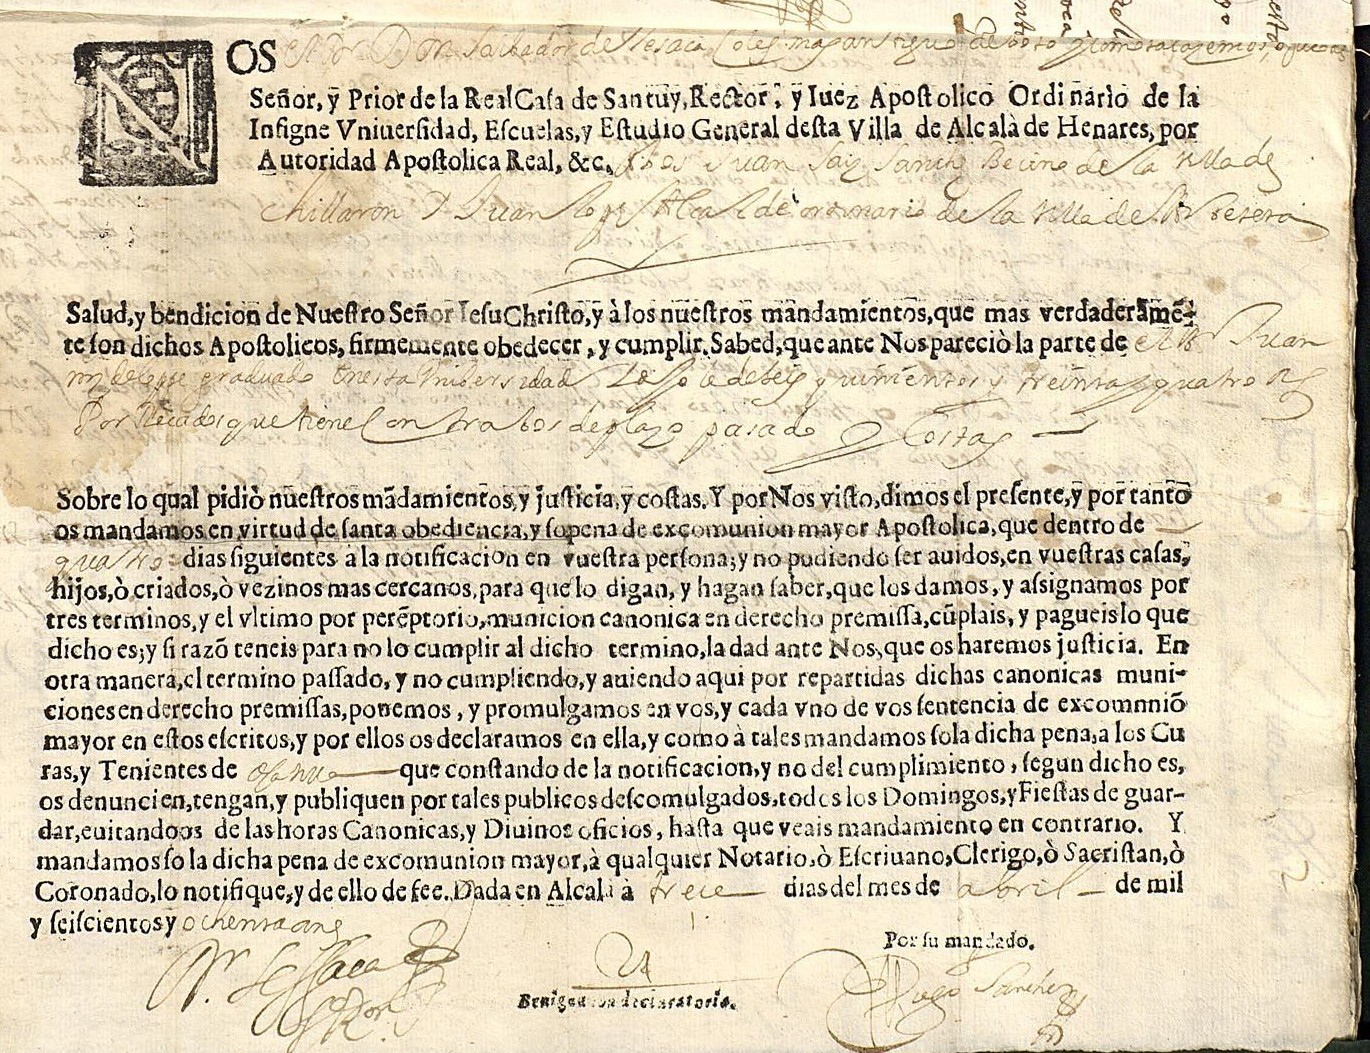 NOS el Dr Don Salbador de
Señor, ÿ Prior de la Real Casa de Santuy, Rector, y Iuez Apostolico Ordinario de la
Insigne Vniuersidad, Escuelas, y Estudio General desta Villa de Alcalà de Henares, por
Autoridad Apostolica Real, &c. Juan Saiz Sanchz Becino de la Villa de
chillaron Juan Lopez Alcalde ordinario de la Villa de
Salud, y bendicion de Nuestro Señor IesuChristo, y à los nuestros mandamientos, que mas verdaderamẽ-
te son dichos Apostolicos, firmemente obedecer, y cumplir. Sabed, que ante Nos pareciò la parte de el Juan
graduado en esta Unibersidad de seis y quinientos y treinta y quatro Rs
Por Recados que tiene Contra bos de plazo pasado y Costas
Sobre lo qual pidiò nuestros mãdamientos, y justicia, y costas. Y por Nos visto, dimos el presente, ÿ por tanto
os mandamos en virtud de santa obediencia, y sopena de excomunion mayor Apostolica, que dentro de
quatro dias siguientes à la notificacion en vuestra persona; y no pudiendo ser auidos, en vuestras casas,
hijos, ò criados, ò vezinos mas cercanos, para que lo digan, y hagan saber, que los damos, y assignamos por
tres terminos, y el vltimo por perẽptorio, municion canonica en derecho premissa, cũplais, y pagueis lo que
dicho es; y si razõ teneis para no lo cumplir al dicho termino, la dad ante Nos, que os haremos justicia. En
otra manera, el termino passado, y no cumpliendo, y auiendo aqui por repartidas dichas canonicas muni-
ciones en derecho premissas, ponemos, y promulgamos en vos, y cada vno de vos sentencia de excomnniõ
mayor en estos escritos, y por ellos os declaramos en ella, y como à tales mandamos sola dicha pena, a los Cu
ras, y Tenientes de que constando de la notificacion, y no del cumplimiento, segun dicho es,
os denuncien, tengan, y publiquen por tales publicos descomulgados, todos los Domingos, y Fiestas de guar-
dar, euitandoos de las horas Canonicas, y Diuinos oficios, hasta que veais mandamiento en contrario. Y
mandamos so la dicha pena de excomunion mayor, à qualquier Notario, ò Escriuano, Clerigo, ò Sacristan, ò
Coronado, lo notifique, y de ello de fee. Dada en Alcalà à trece dias del mes de abril de mil
y seiscientos y ochenta
Por su mandado.
Diego Sanchez
Benigna con declaratoria.